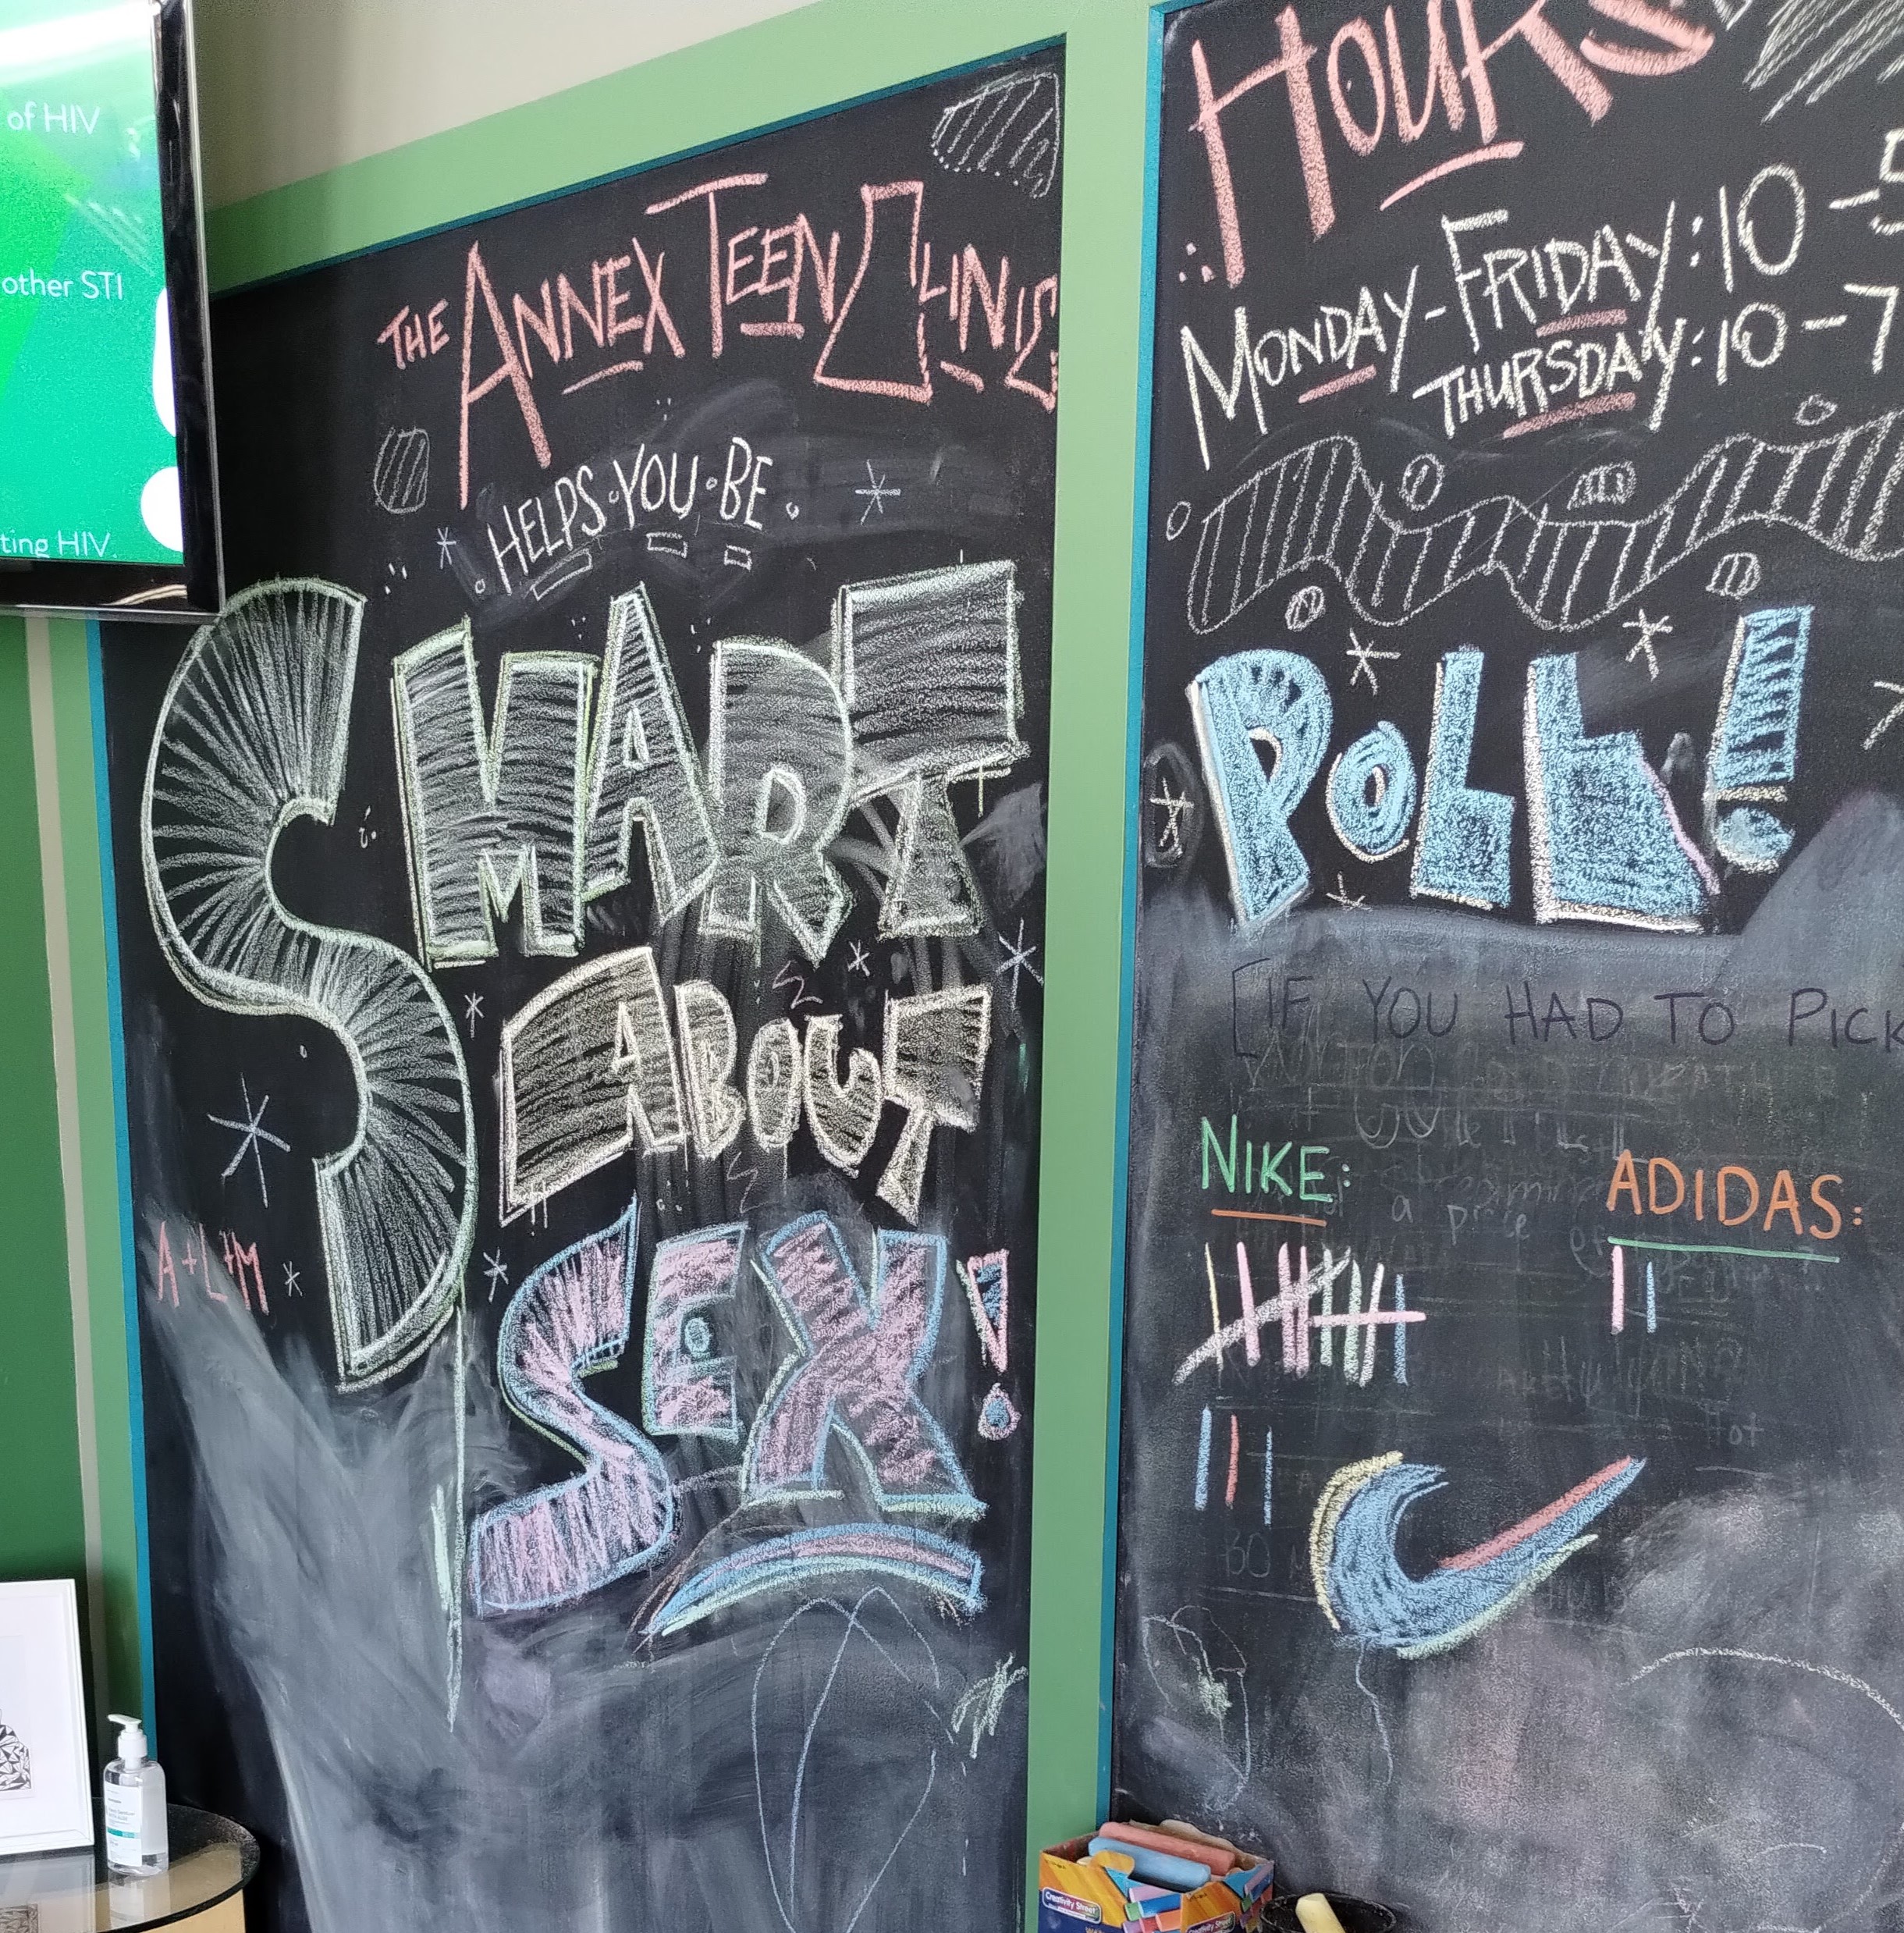 of HIV
other STI
ting HIV
THE ANNEX TEEN CLINIC
HELPS·YOU·BE
SMART
ABOUT
SEX!
A+L+M
HOURS
MONDAY-FRIDAY:10-5
THURSDAY:10-7
POLL!
[IF YOU HAD TO PICK
NIKE:
ADIDAS:
a piece of
Creativity Street